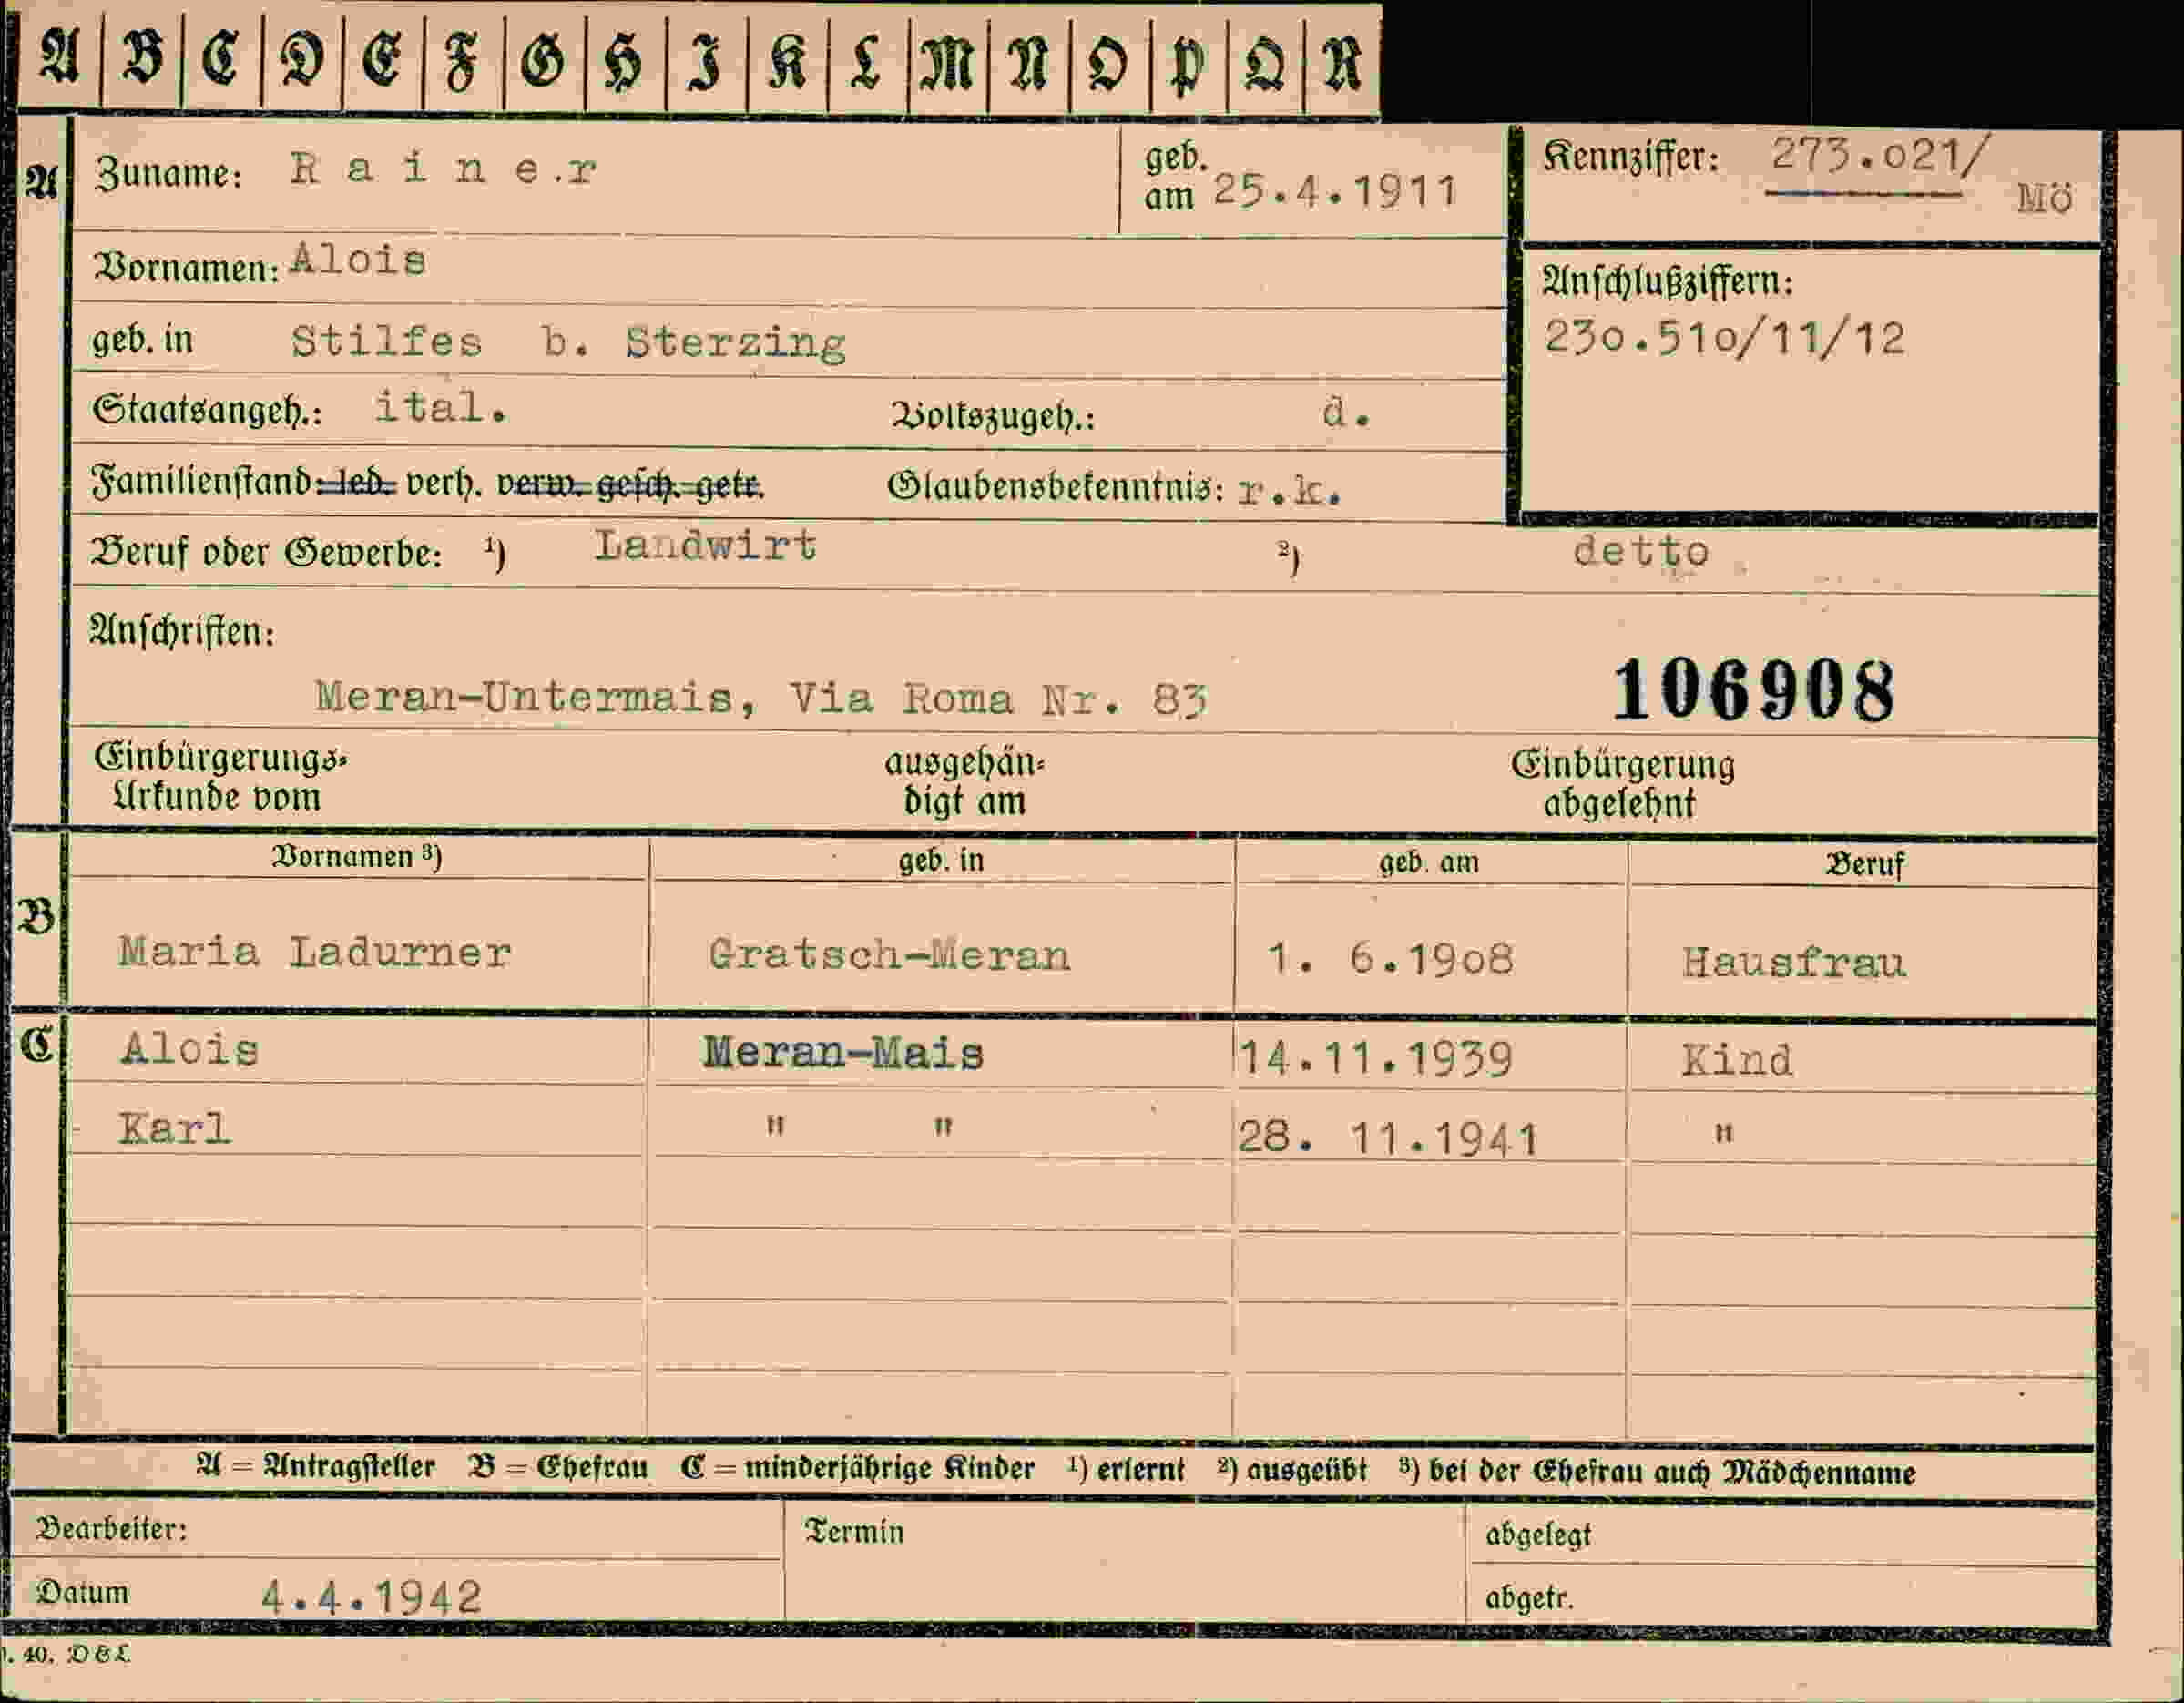 A B C D E F G H I K L M N O P Q R
A Zuname: R a i n e.r geb. am 25.4.1911 Kennziffer: 273.021/ Mö
Vornamen: Alois
Anschlußziffern:
geb. in Stilfes b. Sterzing 230.510/11/12
Staatsangeh.: ital. Volkszugeh.: d.
Familienstand: led. verh. verw. gesch. getr. Glaubensbekenntnis: r.k.
Beruf oder Gewerbe: ¹) Landwirt ²) detto
Anschriften:
Meran-Untermais, Via Roma Nr. 83 106908
Einbürgerungs- ausgehän- Einbürgerung
Urkunde vom digt am abgelehnt
Vornamen ³) geb. in geb. am Beruf
B
Maria Ladurner Gratsch-Meran 1. 6.1908 Hausfrau
C Alois Meran-Mais 14.11.1939 Kind
Karl " " 28. 11.1941 "
A = Antragsteller B = Ehefrau C = minderjährige Kinder ¹) erlernt ²) ausgeübt ³) bei der Ehefrau auch Mädchenname
Bearbeiter: Termin abgelegt
Datum 4.4.1942 abgetr.
. 40. D&L